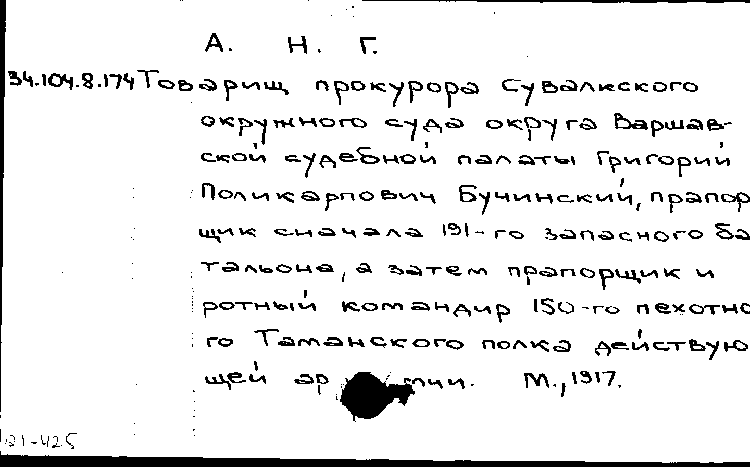 А. Н. Г.
34.104.8.174 Товарищ прокурора Сувалкского
окружного суда округа Варшав-
ской судебной палаты Григорий
Поликарпович Бучинский, прапор
щик сначала 191-го запасного ба
тальона, а затем прапорщик и
ротный командир 150-го пехотно
го Таманского полка действую
щей ар мии. М., 1917.
21-425